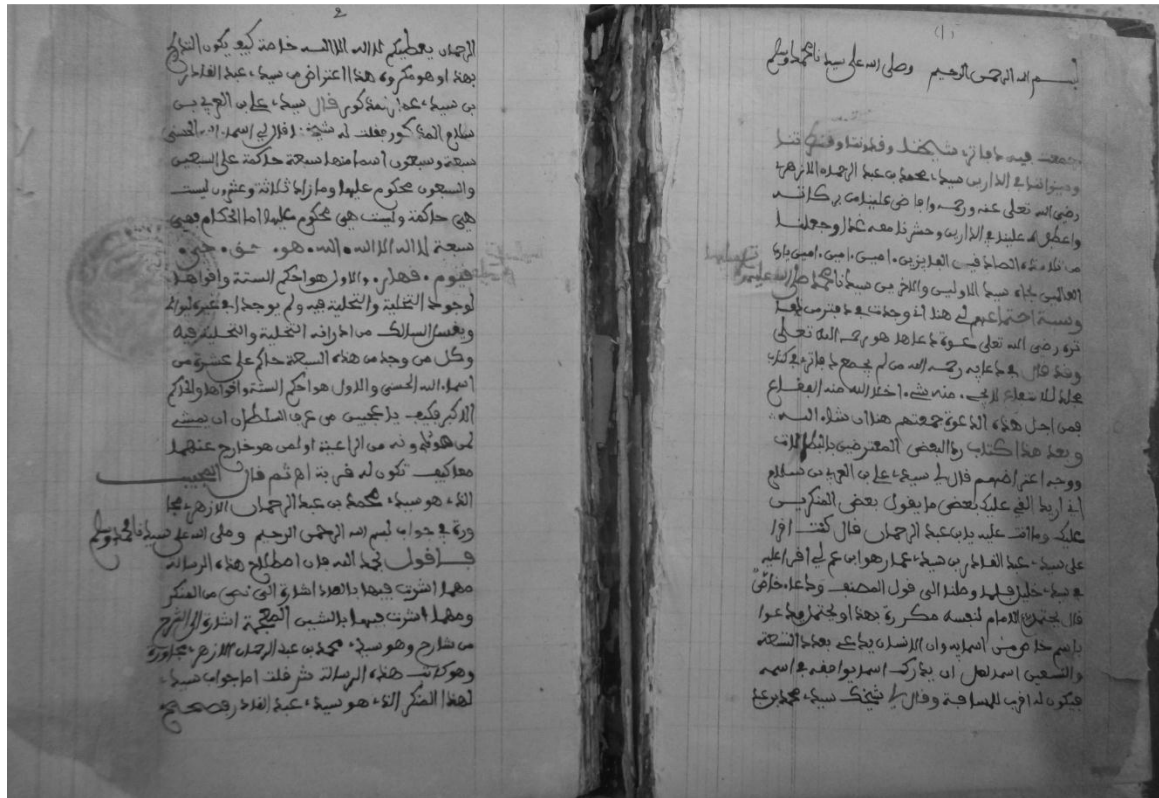 (1)
بسم الله الرحمن الرحيم وصلى الله على سيدنا محمد وسلم
جمعت فيه دفاتر شيخنا وقدوتنا
في الدارين سيد محمد بن عبد الرحمان الازهري
رضي الله تعلى عنه ورحمه وافاض علينا من بركاته
علينا في الدارين وحشرنا معه غدا وجعلنا
من تلامذته امين امين امين يارب
العالمين بجاه سيد الاولين والاخرين سيدنا محمد صلى الله عليه وسلم تسليما
اجتماعهم لي هنا اني وجدت في دفتر من
رضي الله تعلى دعوة دعاها هو رحمه الله تعلى
قال في دعايه رحمه الله من لم يجمع دفاتري في كتاب
منه شيء
فمن اجل هذه الدعوة جمعتهم هنا ان شاء الله
وبعد هذا كتاب رد البعض المعترضين
ووجه اعتراضهم قال لي سيد علي بن العربي بن سالم
اني اريد القي عليك بعض ما يقول بعض المنكرين
عليك وما انت عليه يا بن عبد الرحمان قال كنت اقرا
على سيد عبد القادر بن سيد عمار هو ابن عم لي اقرا عليه
في سيد خليل فلما وصلنا الى قول المصنف ودعاء خاص
قال يحتمل الامام لنفسه مكروه بهذا او يحتمل يدعوا
باسم خاص من اسمايه وان الانسان يدعي بعدد التسعة
والتسعين اسم لعل ان يدرك اسم يوافقه في اسمه
فيكون له اقرب للمسافة وقال لي شيخك سيد محمد بن عبد
2
الرحمان يعطيكم لا اله الا الله خاصة كيف يكون
بهذا وهو مكروه هذا اعتراض من سيد عبد القادر
بن سيد عمار المذكور قال سيد علي بن العربي بن
سالم المذكور فقلت له شيخ قال لي اسماء الله الحسنى
سبعة وسبعون اسما منها سبعة حاكمة على السبعين
والسبعون محكوم عليها وما زاد ثلاثة وعشرون ليست
هي حاكمة وليست هي محكوم عليها اما الحكام فهي
سبعة لا اله الا الله . الله . هو . حق . حي .
قيوم . قهار . والاول هو احكم الستة واقواها
لوجود التخلية والتحلية فيه ولم يوجدا في غيره
ويغسل السالك من ادرانه التخلية والتحلية فيه
وكل من وجد من هذه السبعة حاكم على عشرة من
اسماء الله الحسنى والاول هو احكم الستة واقواها والحاكم
الاكبر فكيف يا عجبي من عرف السلطان ان يمشي
لمن هو دونه من الراعية او لمن هو خارج عنهما
معا كيف تكون له قربة ام ثم قال المجيب
الذي هو سيد محمد بن عبد الرحمان الازهري
في جوابه بسم الله الرحمن الرحيم وصلى الله على سيدنا محمد وسلم
فاقول بحمد الله فان اصطلاح هذه الرسالة
مهما اشرت فيها اشارة الى نص من المنكر
ومهما اشرت فيها بالشين المعجمة اشارة الى الشرح
من شارح وهو سيد محمد بن عبد الرحمان الازهري
وهو كاتب هذه الرسالة ش قلت اما جواب سيد
لهذا المنكر الذي هو سيد عبد القادر